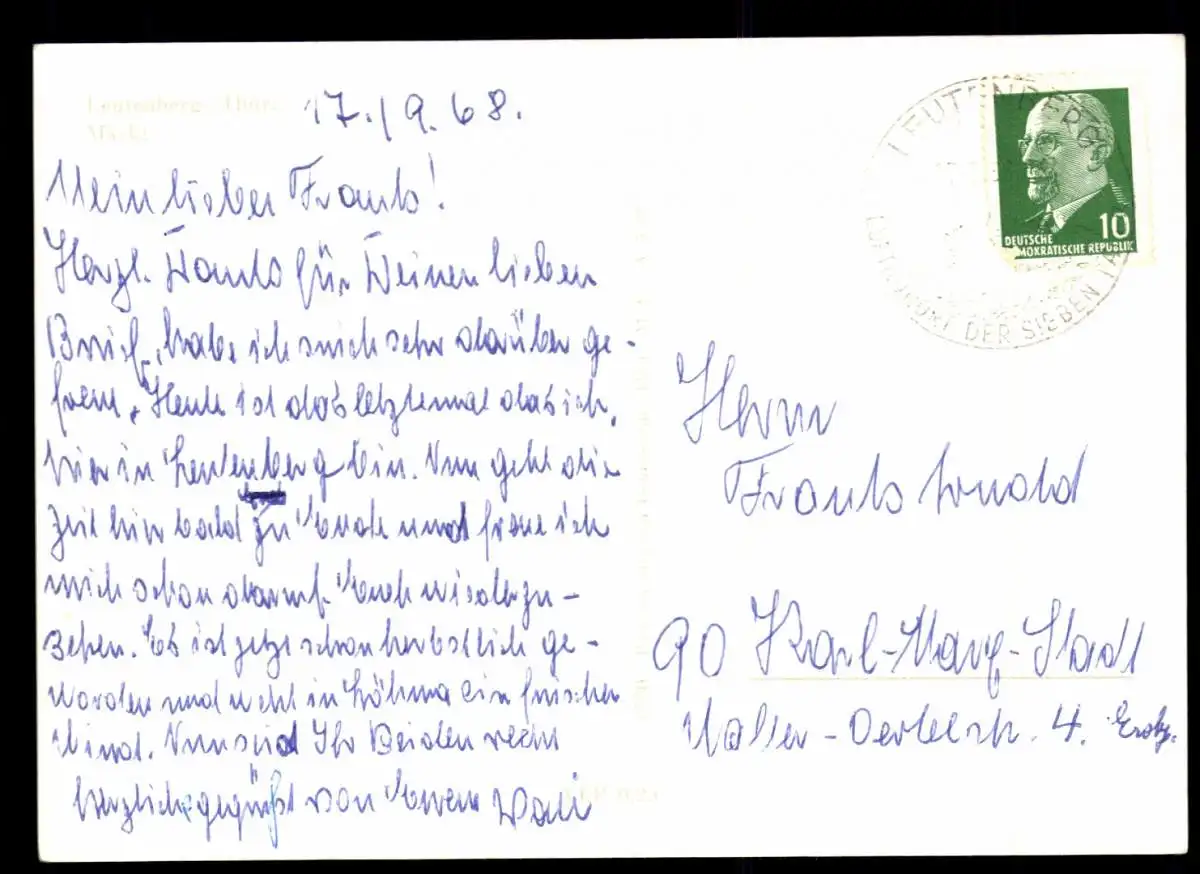 Leutenberg, Thür.
Markt
17./9.68.
Mein lieber Frank!
Herzl. Dank für Deinen lieben
Brief, habe ich mich sehr darüber ge-
freut. Heute ist das letztemal das ich
hier in Leutenberg bin. Nun geht die
Zeit hir bald zu Ende und freue ich
mich schon darauf Euch wiederzu-
sehen. Es ist jetzt schon herbstlich ge-
worden und weht in Löhma ein frischer
Wind. Nun seid Ihr Beiden recht
herzlich gegrüßt von Eurem
LEUTENBERG
LUFTKURORT DER SIEBEN
10
DEUTSCHE
DEMOKRATISCHE REPUBLIK
Herrn
Frank
90 Karl-Marx-Stadt
Walter-Oertelstr. 4. Erdg.